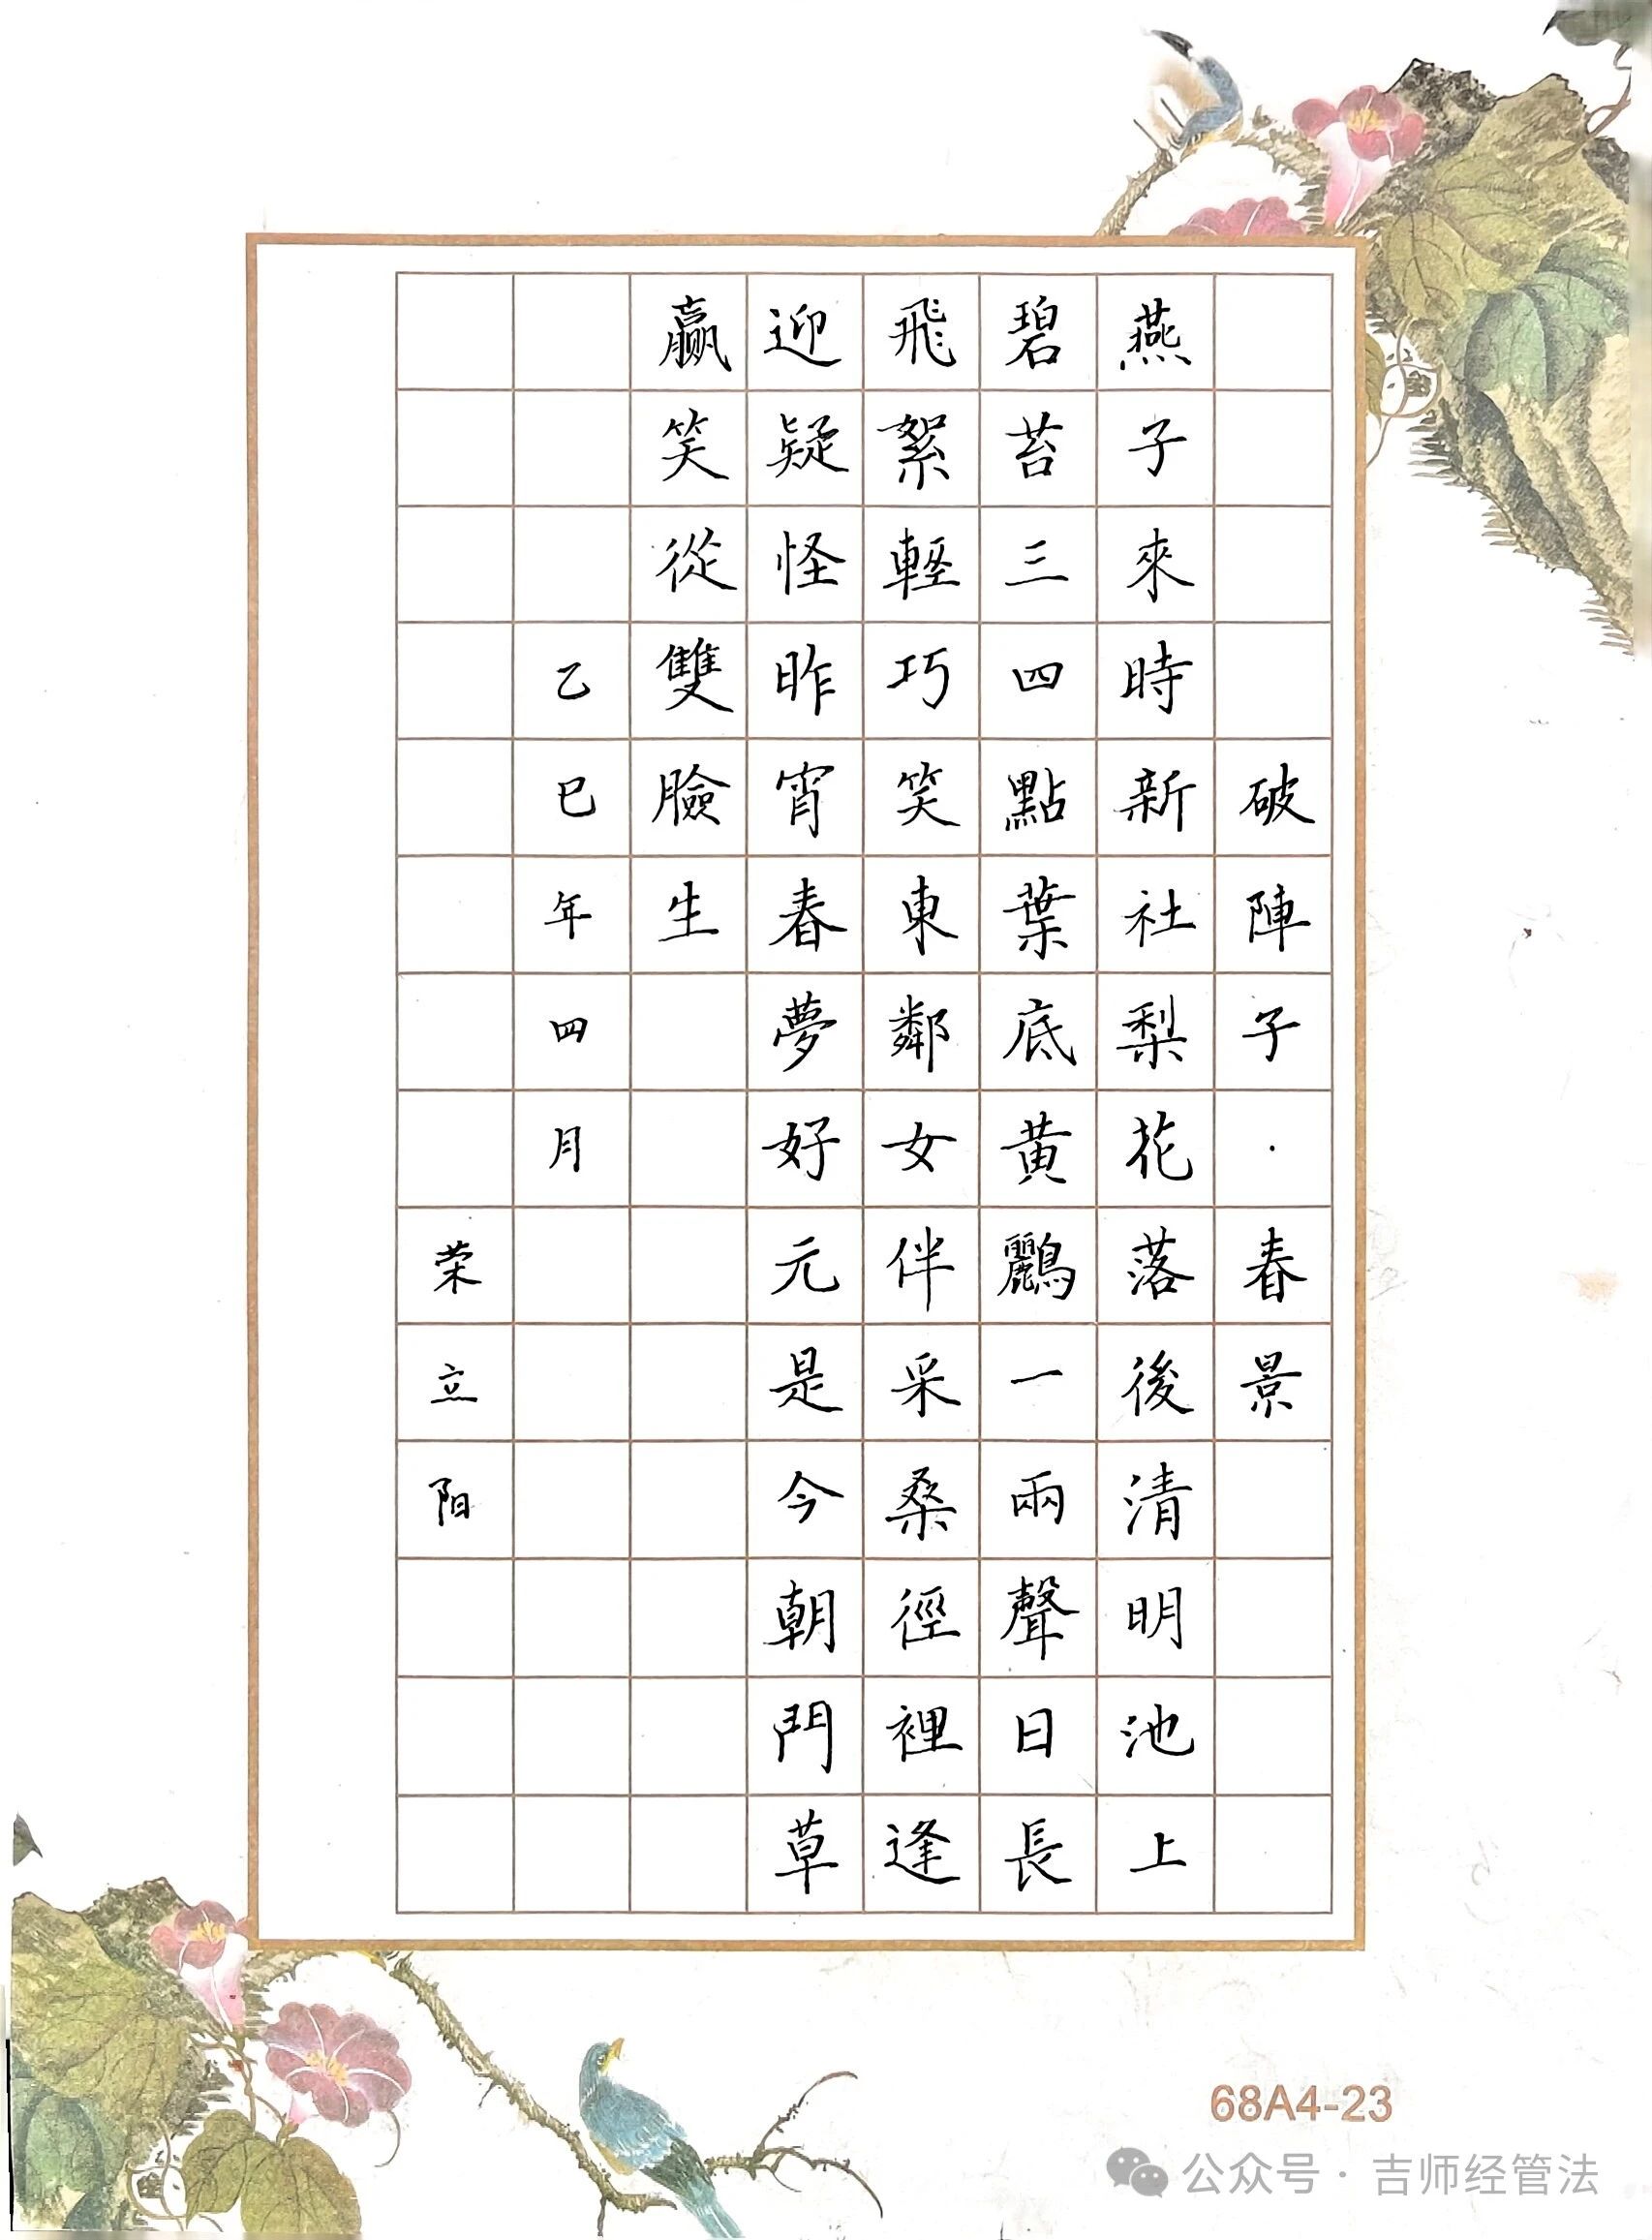 破陣子·春景
燕子來時新社梨花落後清明池上
碧苔三四點葉底黃鸝一兩聲日長
飛絮輕巧笑東鄰女伴采桑徑裡逢
迎疑怪昨宵春夢好元是今朝鬥草
贏笑從雙臉生
乙巳年四月
荣立阳
68A4-23
公众号·吉师经管法